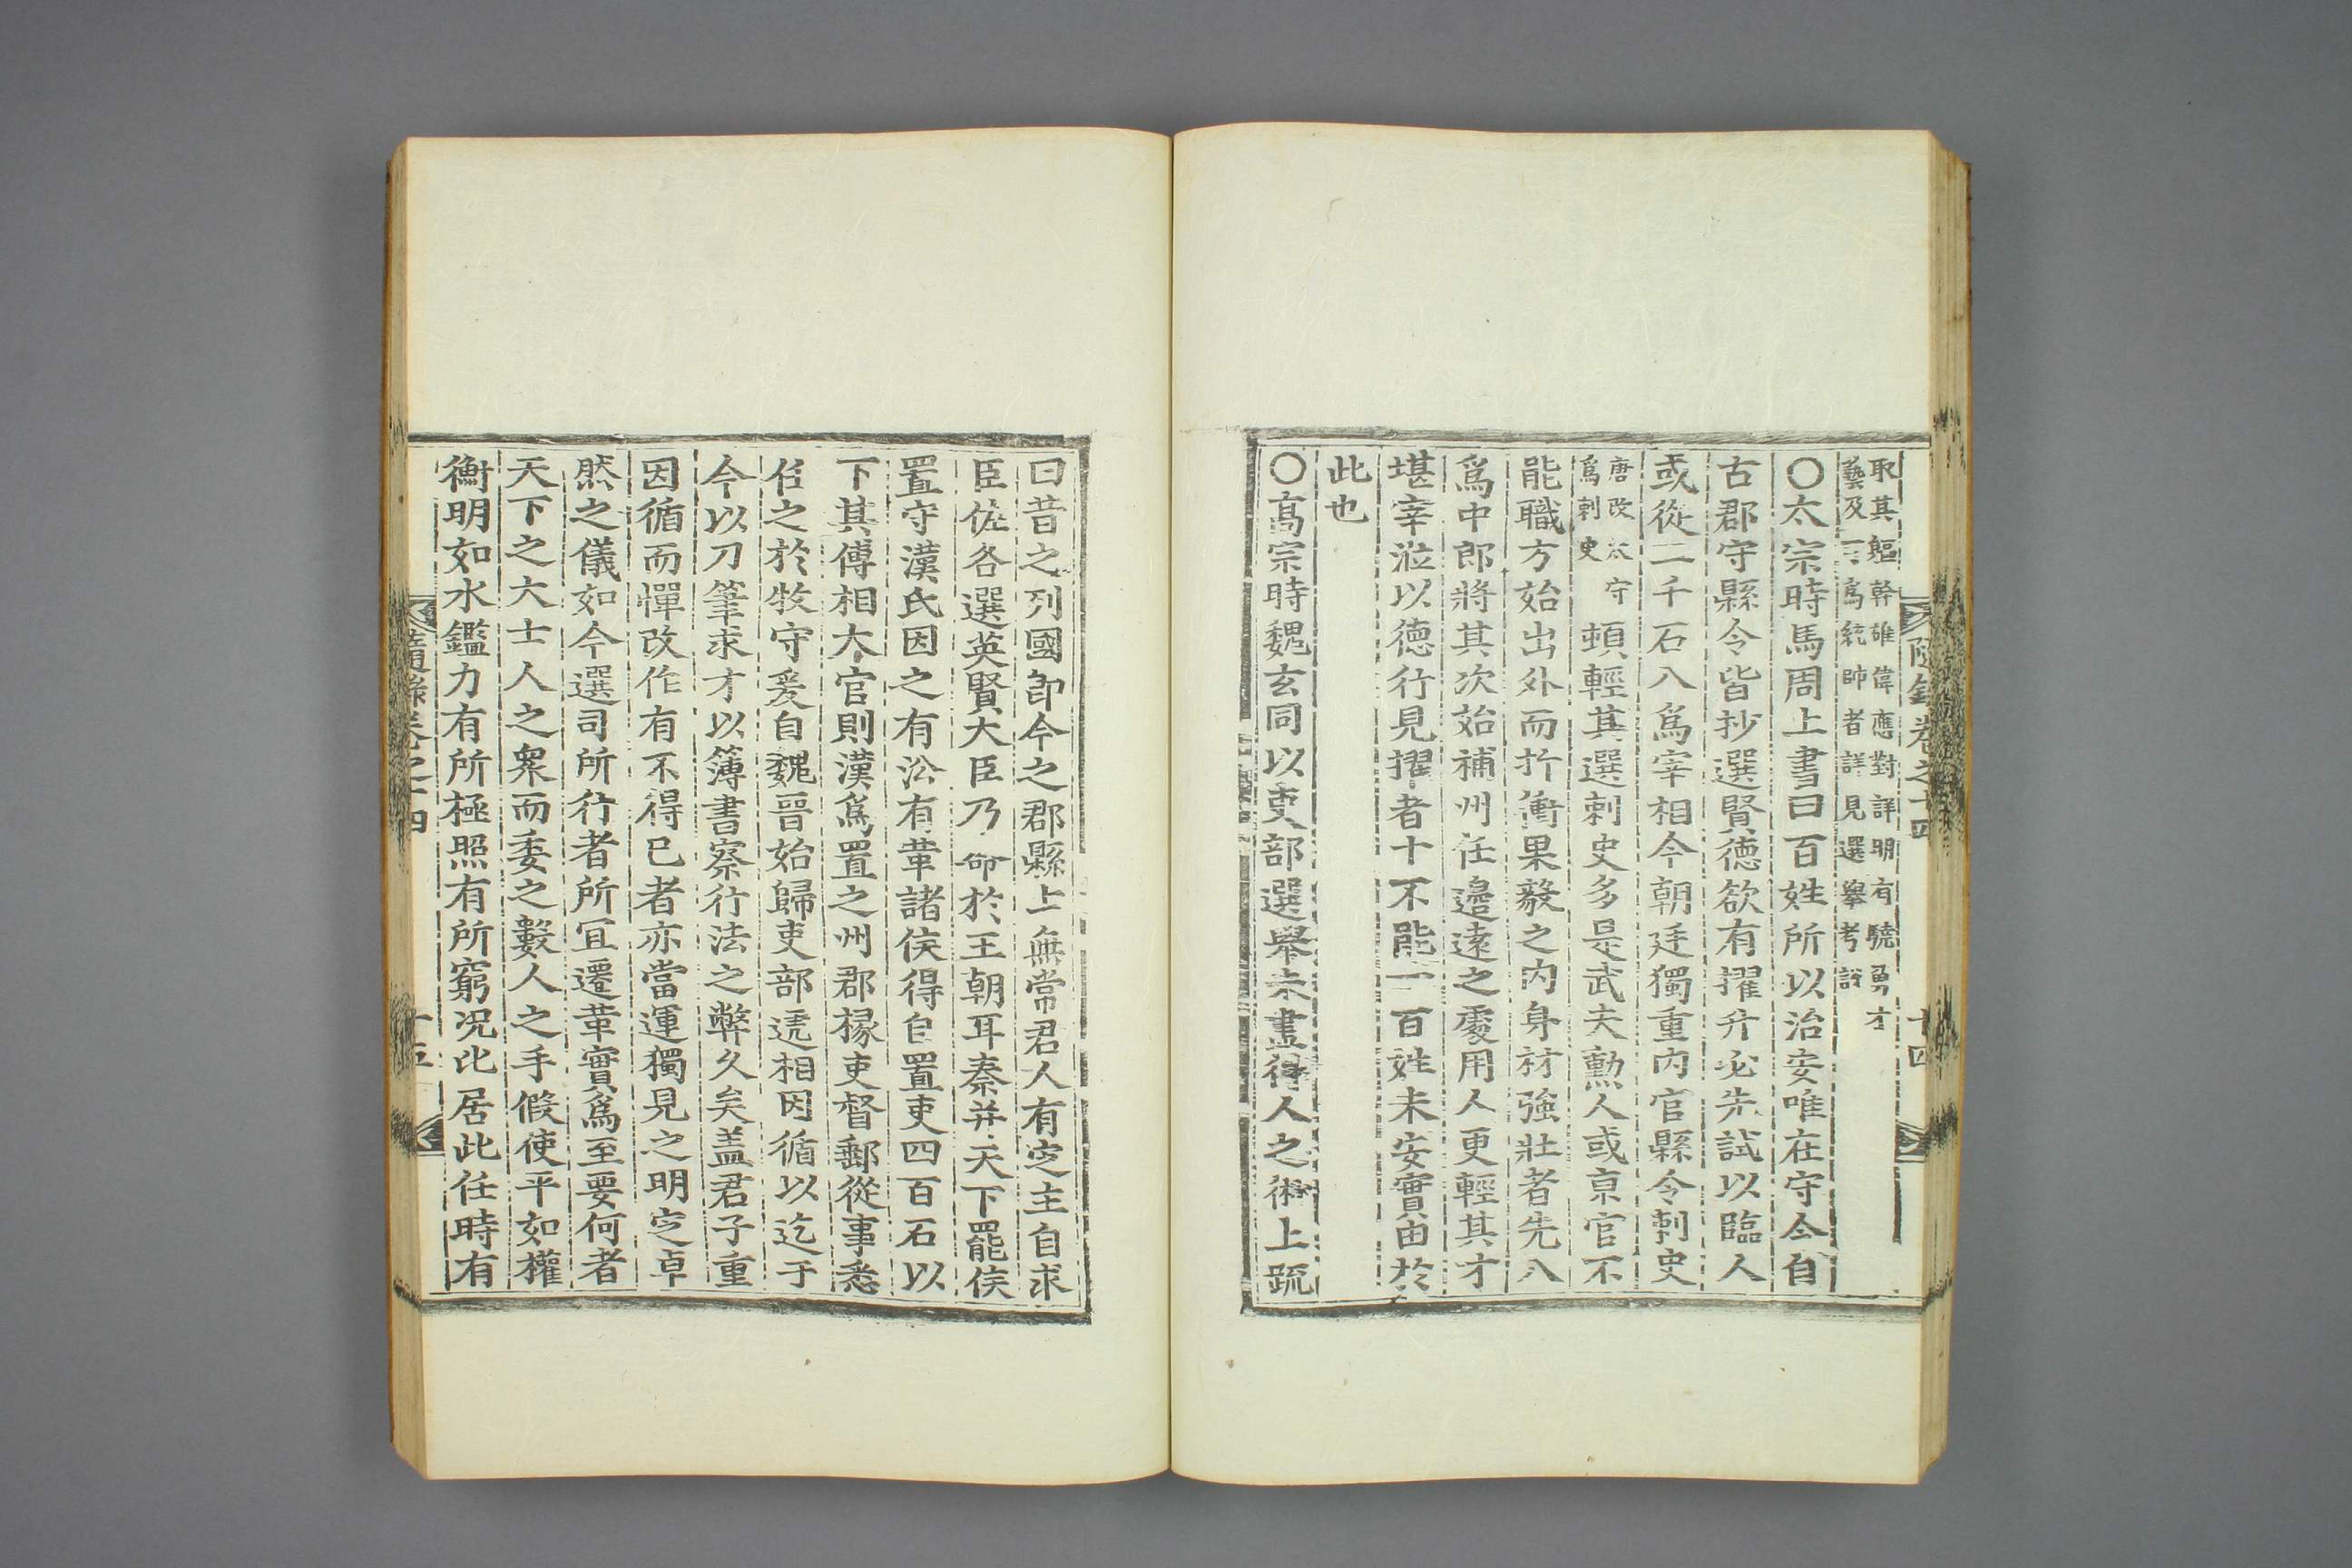 隨錄卷之十四
十四
取其軀幹雄偉應對詳明有驍勇才
藝及可爲統帥者詳見選擧考證
○太宗時馬周上書曰百姓所以治安唯在守令自
古郡守縣令皆抄選賢德欲有擢升必先試以臨人
或從二千石入爲宰相今朝廷獨重內官縣令刺史
唐改太守
爲刺史
頓輕其選刺史多是武夫勳人或京官不
能職方始出外而折衝果毅之內身材強壯者先入
爲中郎將其次始補州任邊遠之處用人更輕其才
堪宰涖以德行見擢者十不能一百姓未安實由於
此也
○高宗時魏玄同以吏部選擧未盡得人之術上疏
曰昔之列國卽今之郡縣上無常君人有定主自求
臣佐各選英賢大臣乃命於王朝耳秦并天下罷侯
置守漢氏因之有沿有革諸侯得自置吏四百石以
下其傅相大官則漢爲置之州郡掾吏督郵從事悉
任之於牧守爰自魏晉始歸吏部遞相因循以迄于
今以刀筆求才以簿書察行法之弊久矣盖君子重
因循而憚改作有不得已者亦當運獨見之明定卓
然之儀如今選司所行者所冝遷革實爲至要何者
天下之大士人之衆而委之數人之手假使平如權
衡明如水鑑力有所極照有所窮况比居此任時有
隨錄卷之十四
十五